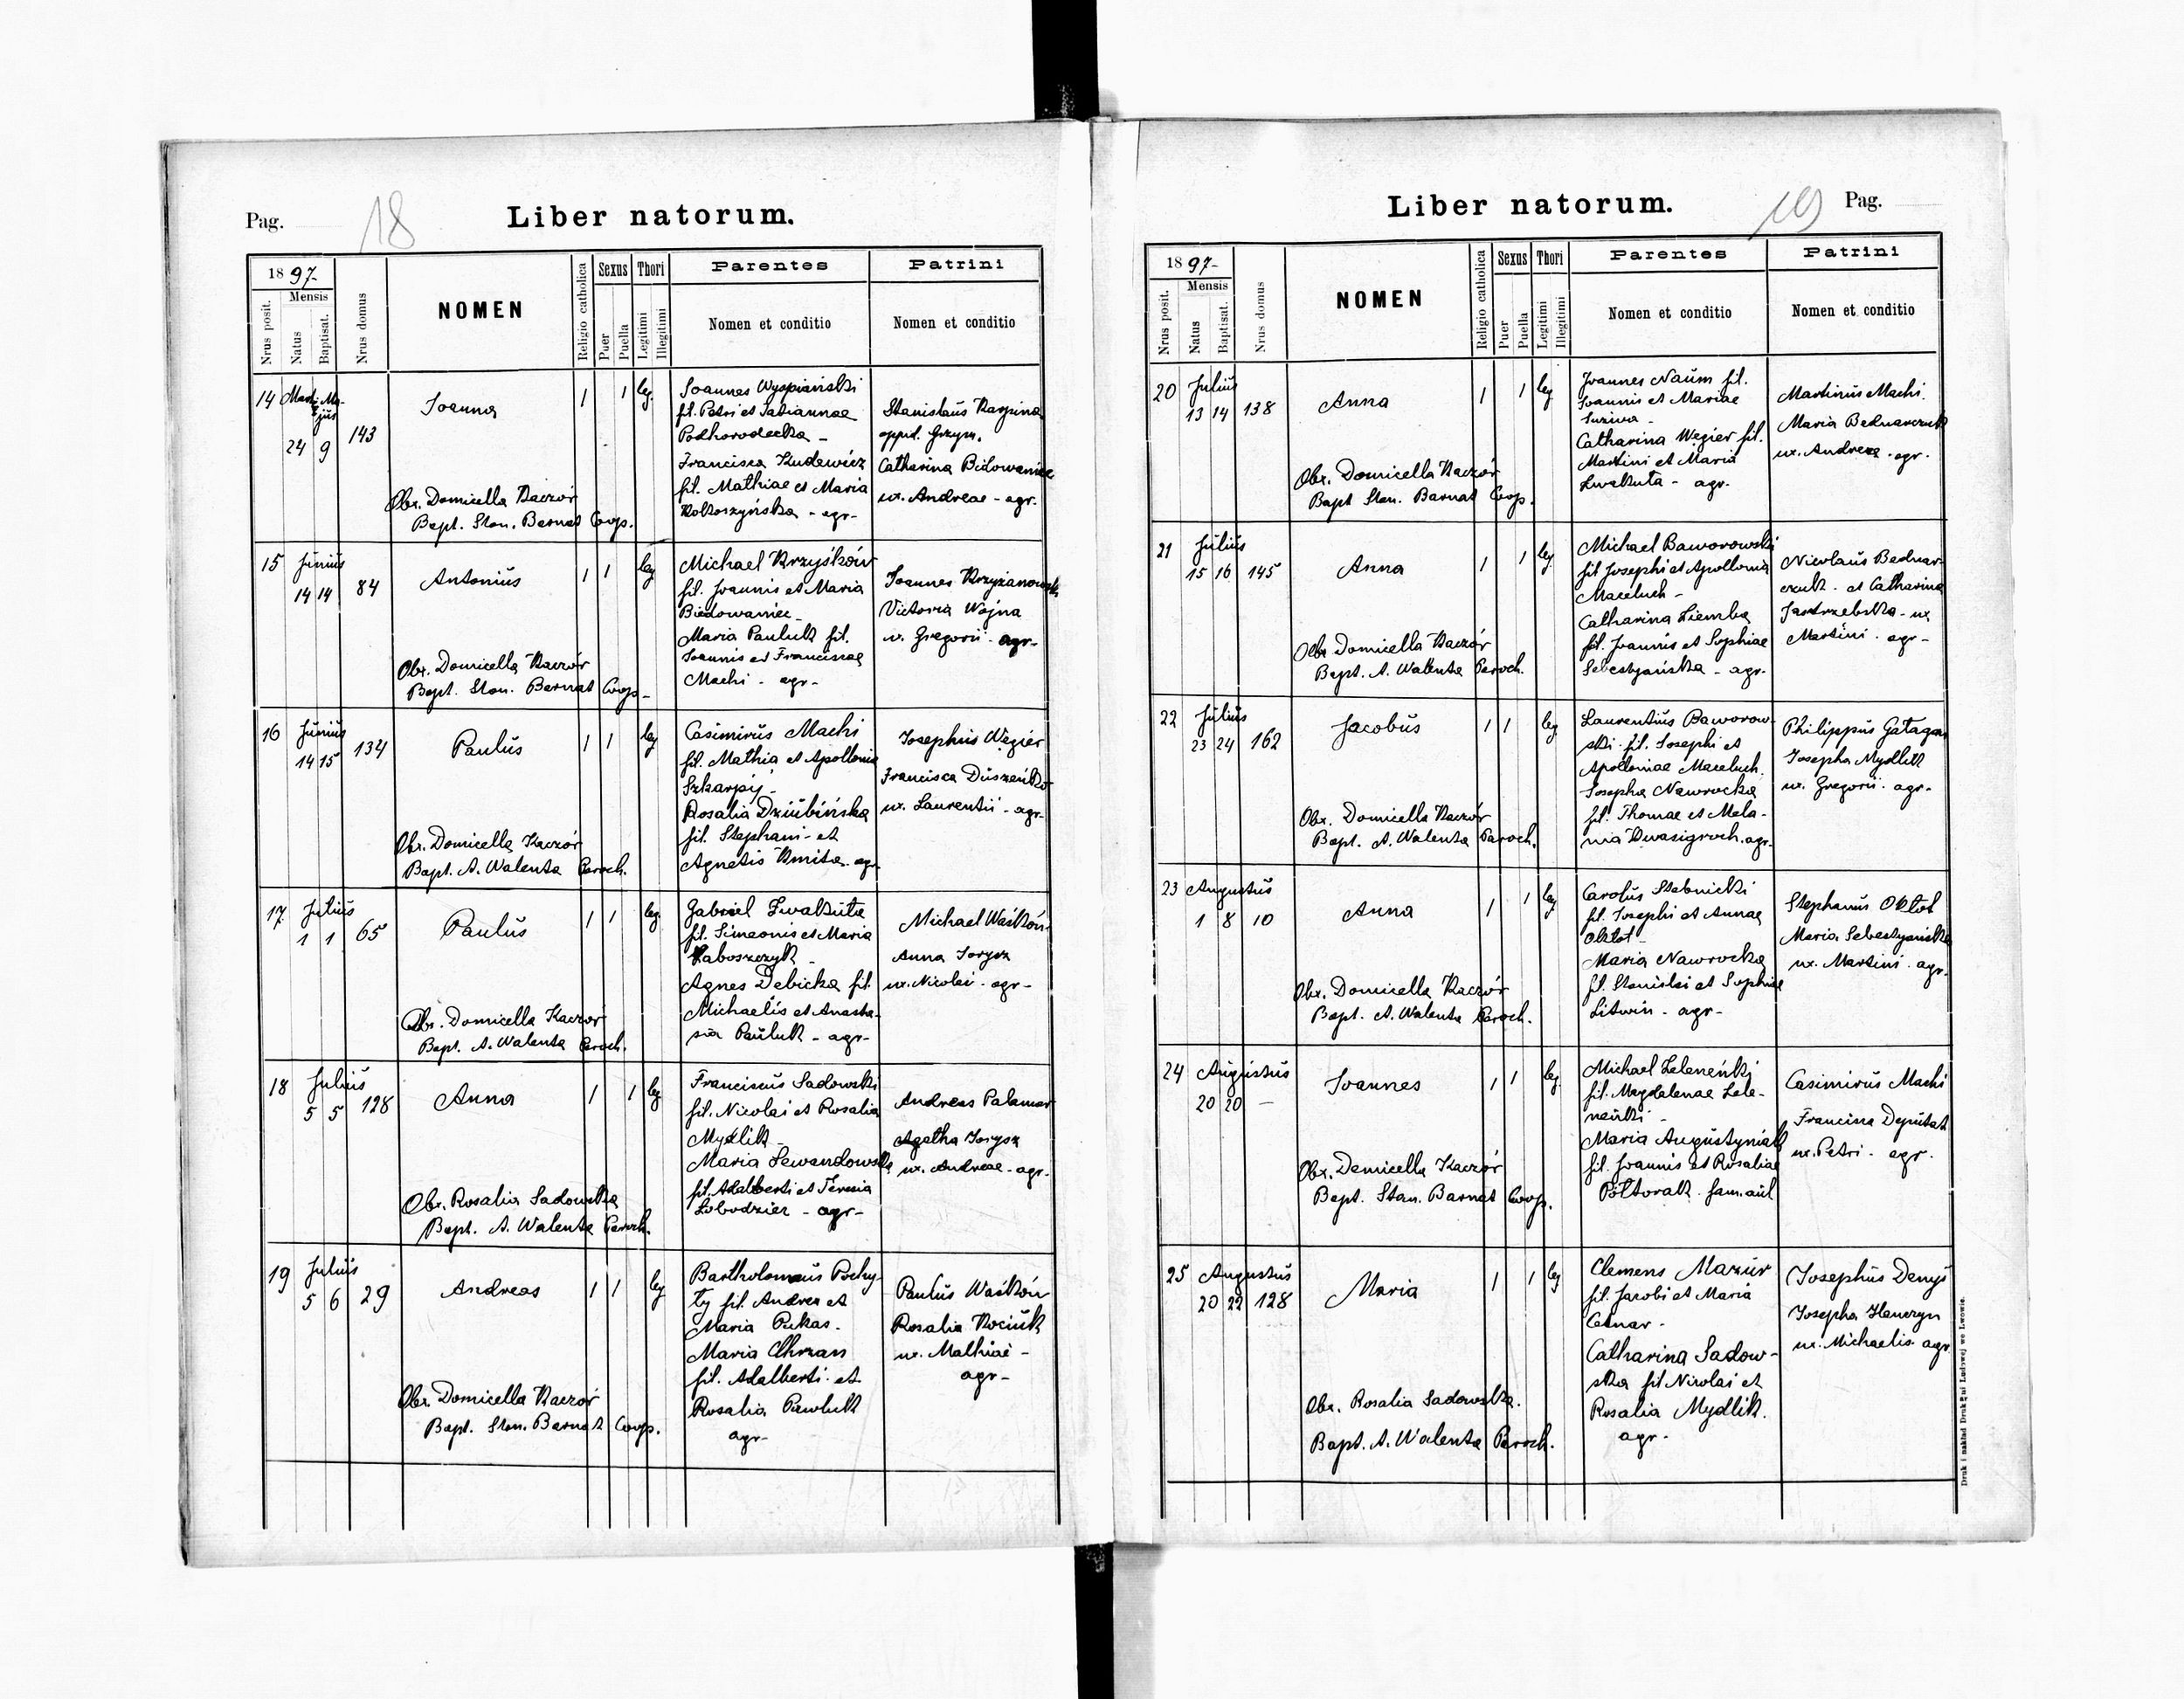 Pag. 18
Liber natorum.
1897
Nrus posit.
Mensis
Natus
Baptisat.
Nrus domus
NOMEN
Religio catholica
Sexus
Puer
Puella
Thori
Legitimi
Illegitimi
Parentes
Nomen et conditio
Patrini
Nomen et conditio
14
24 9
143
Joanna
1 1 leg.
Obx. Domicella Kaczór
Bapt. Stan. Barnat Coop.
Joannes Wyspiański
fil. Petri et Tatiannae
Podhorodecka -
Francisca Kudewicz
fil. Mathiae et Maria
Kokoszyńska - agr-
Stanislaus Karpina
oppid. Grzym.
Catharina Bidowaniec
ux. Andreae - agr.
15 Junius
14 14 84
Antonius
1 1 leg
Obx. Domicella Kaczór
Bapt. Stan. Barnat Coop-
Michael Krzyśków
fil. Joannis et Maria
Biedowaniec -
Maria Pauluk fil.
Joannis et Franciscae
Machi - agr-
Joannes Krzyżanowski
Victoria Wojna
u. Gregorii - agr-
16 Junius
14 15 134
Paulus
1 1 leg
Obx. Domicella Kaczór
Bapt. A. Walenta Paroch.
Casimirus Machi
fil. Mathia et Apollonia
Szkarpij -
Rosalia Dziubińska
fil. Stephani - et
Agnetis Kmita - agr.
Josephus Węgier
Francisca Duszeńko
ux. Laurentii - agr-
17 Julius
1 1 65
Paulus
1 1 leg
Obx. Domicella Kaczór
Bapt. A. Walenta Paroch.
Gabriel Zwakuta
fil. Simeonis et Maria
Kaboszczyk -
Agnes Debicka fil.
Michaelis et Anasta-
sia Pauluk - agr-
Michael Waśków
Anna Jorysz
ux. Nicolai - agr-
18 Julius
5 5 128
Anna
1 1 leg
Obx. Rosalia Sadowska
Bapt. A. Walenta Paroch.
Franciscus Sadowski
fil. Nicolai et Rosalia
Mydlik -
Maria Lewandowska
fil. Adalberti et Teresia
Łobodziec - agr-
Andreas Palamar
Agatha Jorysz
ux. Andreae - agr.
19 Julius
5 6 29
Andreas
1 1 leg
Obx. Domicella Kaczór
Bapt. Stan. Barnat Coop.
Bartholomaeus Pochy-
ty fil. Andrea et
Maria Pukas -
Maria Chrzan
fil. Adalberti et
Rosalia Pawluk
agr-
Paulus Waśków
Rosalia Kociuk
ux. Mathiae -
agr-
Liber natorum.
19 Pag.
1897-
Nrus posit.
Mensis
Natus
Baptisat.
Nrus domus
NOMEN
Religio catholica
Sexus
Puer
Puella
Thori
Legitimi
Illegitimi
Parentes
Nomen et conditio
Patrini
Nomen et conditio
20 Julius
13 14 138
Anna
1 1 leg
Obx. Domicella Kaczór
Bapt Stan. Barnat Coop.
Joannes Naum fil.
Joannis et Mariae
Catharina Węgier fil.
Martini et Maria
Zwakuta - agr.
Martinus Machi.
Maria Bednarczuk
ux. Andreae - agr.
21 Julius
15 16 145
Anna
1 1 leg
Obx Domicella Kaczór
Bapt. A. Walenta Paroch.
Michael Baworowski
fil Josephi et Apollonia
Maceluch -
Catharina Ziemba
fil. Joannis et Sophiae
Sebestyańska - agr.
Nicolaus Bednar-
czuk - et Catharina
Jastrzebska - ux
Martini - agr-
22 Julius
23 24 162
Jacobus
1 1 leg
Obx. Domicella Kaczór
Bapt. A. Walenta Paroch.
Laurentius Baworow-
ski - fil. Josephi et
Apolloniae Maceluch.
Josepha Nawrocka
fil. Thomae et Mela-
nia Dwasigroch agr.
Philippus Gatagan
Josepha Mydlik
ux. Gregorii - agr-
23 Augustus
1 8 10
Anna
1 1 leg
Obx. Domicella Kaczór
Bapt. A. Walenta Paroch.
Carolus Stebnicki
fil. Josephi et Annae
Oktot -
Maria Nawrocka
fil. Stanislai et Sophiae
Litwin - agr-
Stephanus Oktot
Maria Sebestyańska
ux. Martini - agr-
24 Augustus
20 20 -
Joannes
1 1 leg
Obx. Domicella Kaczór
Bapt. Stan. Barnat Coop.
Michael Zeleneńki
fil. Magdalenae Zele-
neńki -
Maria Augustyniak
fil. Joannis et Rosaliae
Półtorak - fam. aul
Casimirus Machi
Francisca Deputat
ux. Petri - agr.
25 Augustus
20 22 128
Maria
1 1 leg
Obx. Rosalia Sadowska.
Bapt. A. Walenta Paroch.
Clemens Mazur
fil. Jacobi et Maria
Cetnar -
Catharina Sadow-
ska fil Nicolai et
Rosalia Mydlik.
agr-
Josephus Denys
Josepha Hanczyn
ux. Michaelis agr
Druk i nakład Drukarni Ludowej we Lwowie.